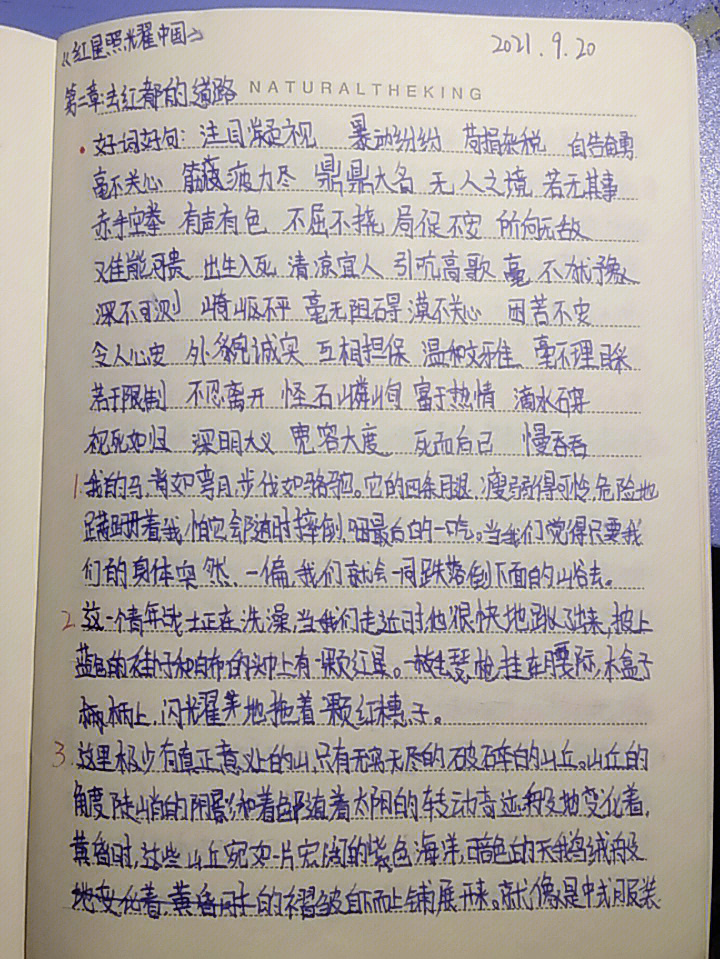 《红星照耀中国》 2021.9.20
第二章:去红都的道路 NATURALTHEKING
·好词好句: 注目凝视 暴动纷纷 苛捐杂税 自告奋勇
毫不关心 筋疲疲力尽 鼎鼎大名 无人之境 若无其事
赤手空拳 有声有色 不屈不挠 局促不安 所向无敌
难能可贵 出生入死 清凉宜人 引吭高歌 毫不犹豫
深不可测 崎岖不平 毫无阻碍 漠不关心 困苦不安
令人心安 外貌诚实 互相担保 温和文雅 毫不理睬
若干限制 不忍离开 怪石嶙峋 富于热情 滴水石穿
视死如归 深明大义 宽容大度 死而后已 慢吞吞
1.我的马,背如弯月,步伐如骆驼。它的四条腿,瘦弱得可怜,危险地
蹒跚着我,怕它会随时摔倒,咽最后的一吃。当我们觉得只要我
们的身体突然,一偏,我们就会一同跌落倒下面的山谷去。
2.这一个青年战士正在洗澡,当我们走近时,他很快地跳了出来,披上
蓝色的褂子和白布的头巾上有一颗红星。一枝毛瑟枪挂在腰际,木盒子
柄上,闪光耀地拖着一颗红穗子。
3.这里极少有真正意义上的山,只有无穷无尽的破碎的山丘。山丘的
角度陡峭的阴影和着色都随着太阳的转动奇迹般地变化着,
黄昏时,这些山丘宛如一片宏阔的紫色海洋,暗色的天鹅绒般
的褶皱自下而上铺展开来。就像是中式服装